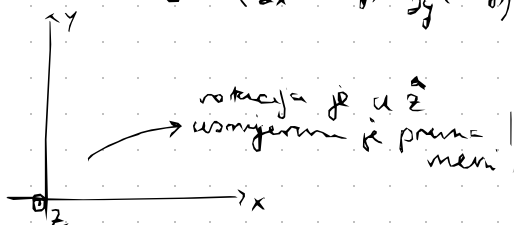 y
rotacija je u ẑ
usmjerena je prema
meni
x
z